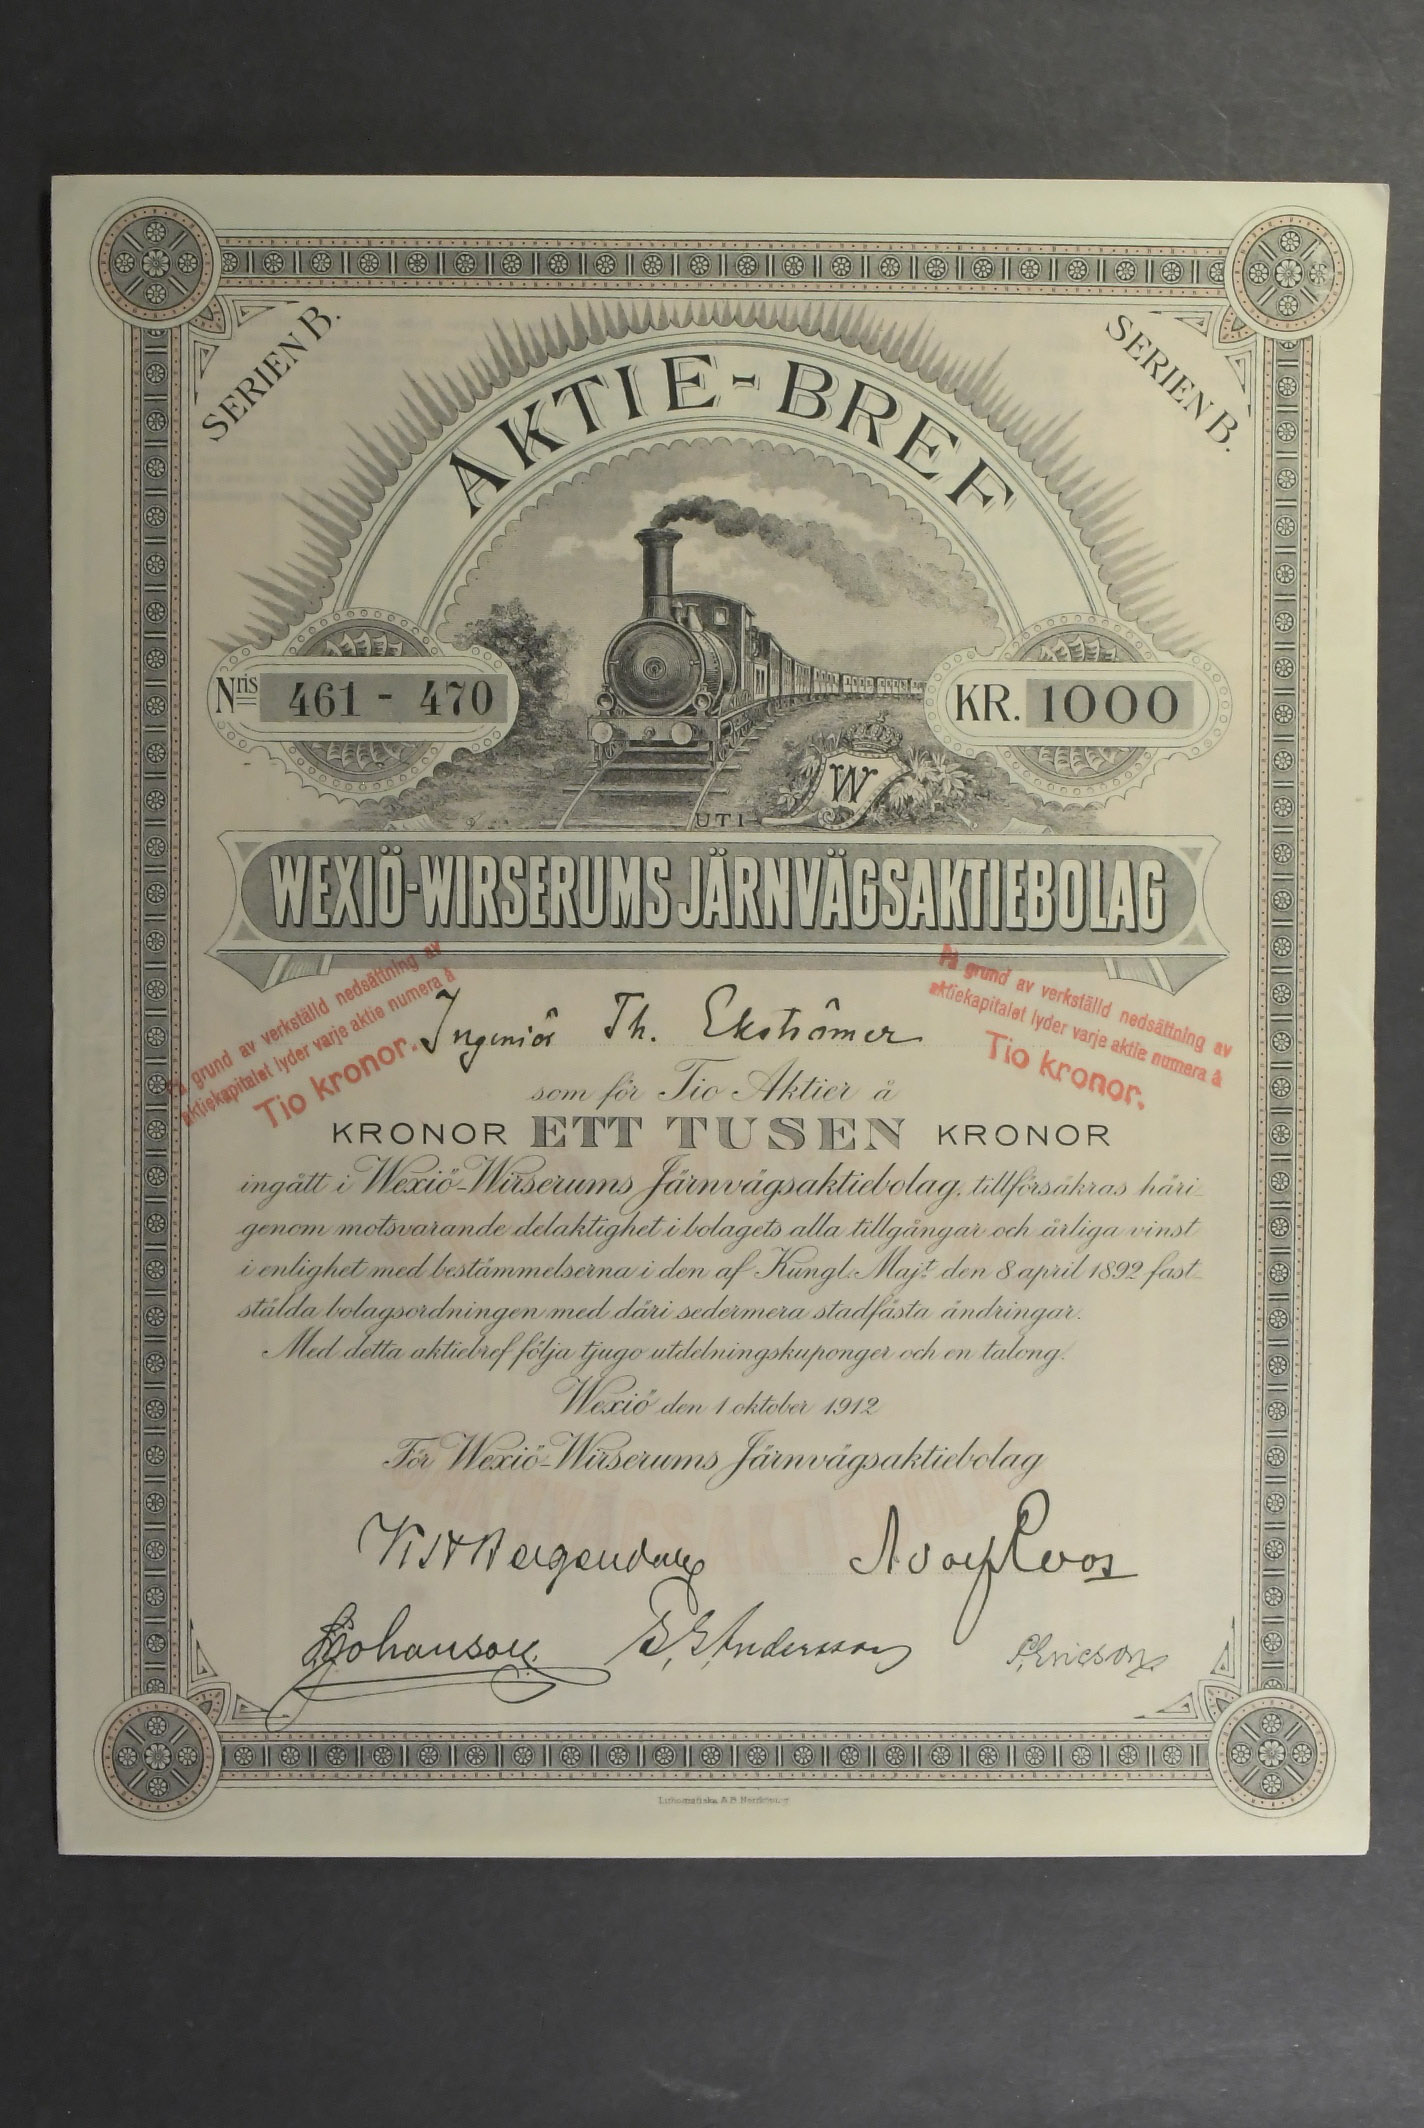 SERIEN B.
SERIEN B.
AKTIE-BREF
Nris 461 - 470
KR. 1000
W
UTI
WEXIÖ-WIRSERUMS JÄRNVÄGSAKTIEBOLAG
På grund av verkställd nedsättning av
aktiekapitalet lyder varje aktie numera å
Tio kronor.
På grund av verkställd nedsättning av
aktiekapitalet lyder varje aktie numera å
Tio kronor.
Ingeniör Th. Ekströmer
som för Tio Aktier à
KRONOR ETT TUSEN KRONOR
ingått i Wexiö-Wirserums Järnvägsaktiebolag, tillförsäkras häri-
genom motsvarande delaktighet i bolagets alla tillgångar och årliga vinst
i enlighet med bestämmelserna i den af Kungl. Majt. den 8 april 1892 fast-
stälda bolagsordningen med däri sedermera stadfästa ändringar.
Med detta aktiebref följa tjugo utdelningskuponger och en talong.
Wexiö den 1 oktober 1912
För Wexiö-Wirserums Järnvägsaktiebolag
Adolf Roos
Johansson
B. E. Andersson
P. Ericson
Lithografiska A.B. Norrköping